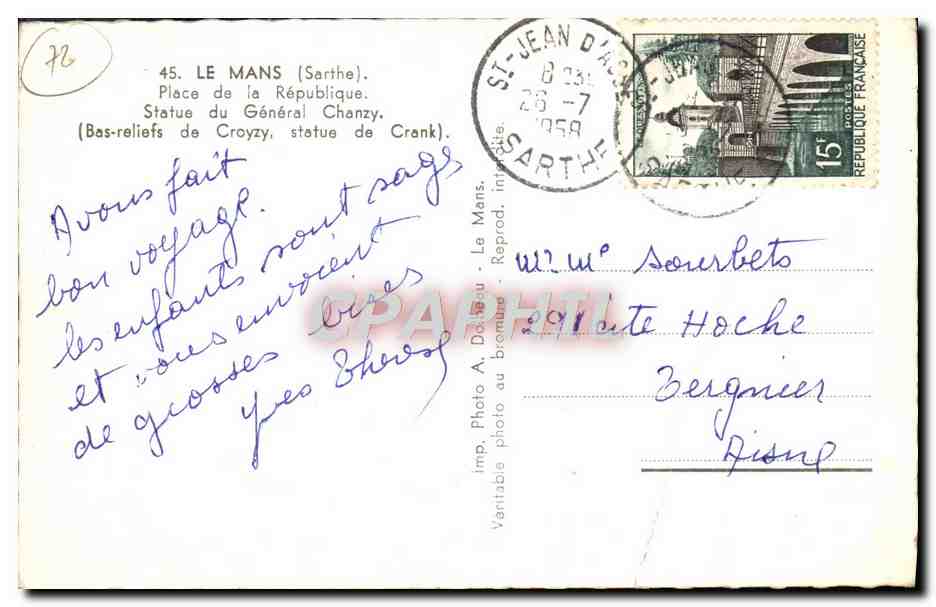 72
45. LE MANS (Sarthe).
Place de la République.
Statue du Général Chanzy.
(Bas-reliefs de Croyzy, statue de Crank).
Avons fait
bon voyage.
les enfants sont sages
et vous envoient
de grosses bises
Yves Thérèse
Imp. Photo A. Dolbeau - Le Mans.
Véritable photo au bromure - Reprod. interdite.
ST-JEAN D'ASSÉ
26 -7
1958
SARTHE
15F
POSTES
REPUBLIQUE FRANÇAISE
CPAPHIL
Mr Me Sourbets
291 cité Hoche
Tergnier
Aisne